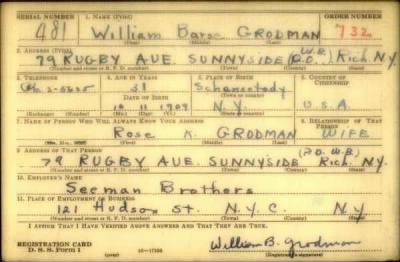 SERIAL NUMBER 1. NAME (Print) ORDER NUMBER
481 William Barse GRODMAN 732
(First) (Middle) (Last)
2. ADDRESS (Print)
79 RUGBY AVE. SUNNYSIDE (P.O. W.B.) Rich. N.Y.
(Number and street or R. F. D. number) (Town) (County) (State)
3. TELEPHONE 4. AGE IN YEARS 5. PLACE OF BIRTH 6. COUNTRY OF CITIZENSHIP
31 Schenectady
DATE OF BIRTH
1909 N.Y. U.S.A.
(Mo.) (Day) (Yr.) (State or county)
7. NAME OF PERSON WHO WILL ALWAYS KNOW YOUR ADDRESS 8. RELATIONSHIP OF THAT PERSON
Rose K. GRODMAN WIFE
(First) (Middle) (Last)
9. ADDRESS OF THAT PERSON (P.O. W.B.)
79 RUGBY AVE. SUNNYSIDE Rich. N.Y.
(Number and street or R. F. D. number) (Town) (County) (State)
10. EMPLOYER'S NAME
Seeman Brothers
11. PLACE OF EMPLOYMENT OR BUSINESS
121 Hudson St. N.Y.C. N.Y.
(Number and street or R. F. D. number) (Town) (County) (State)
I AFFIRM THAT I HAVE VERIFIED ABOVE ANSWERS AND THAT THEY ARE TRUE.
REGISTRATION CARD
D. S. S. Form 1 William B. Grodman
(Registrant's signature)